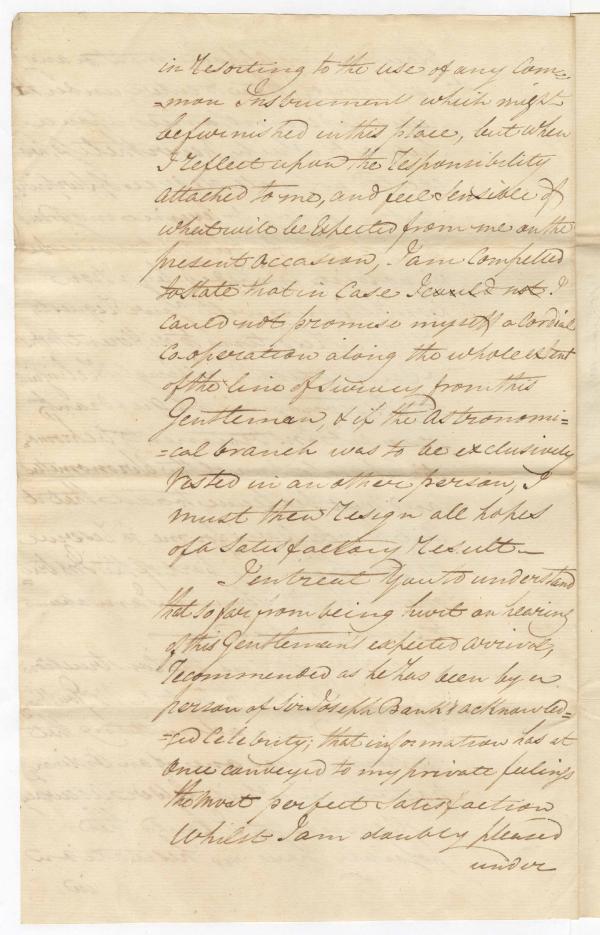 in resorting to the use of any Com-
=mon Instrument which might
be furnished in this place, but when
I reflect upon the responsibility
attached to me, and feel sensible of
what will be Expected from me on the
present occasion, I am Compelled
to state that in Case I could not I
could not promise myself a Cordial
Co-operation along the whole extent
of the line of survey from this
Gentleman, & if the Astronomi-
=cal branch was to be exclusively
Vested in another person, I
must then resign all hopes
of a Satisfactory Result_
I entreat You to understand
that so far from being hurt on hearing
of this Gentleman's expected arrival,
recommended as he has been by a
person of Sir Joseph Banks's acknowled=
=ged Celebrity; that information has at
Once conveyed to my private feelings
the most perfect Satisfaction
Whilst I am doubly pleased
under